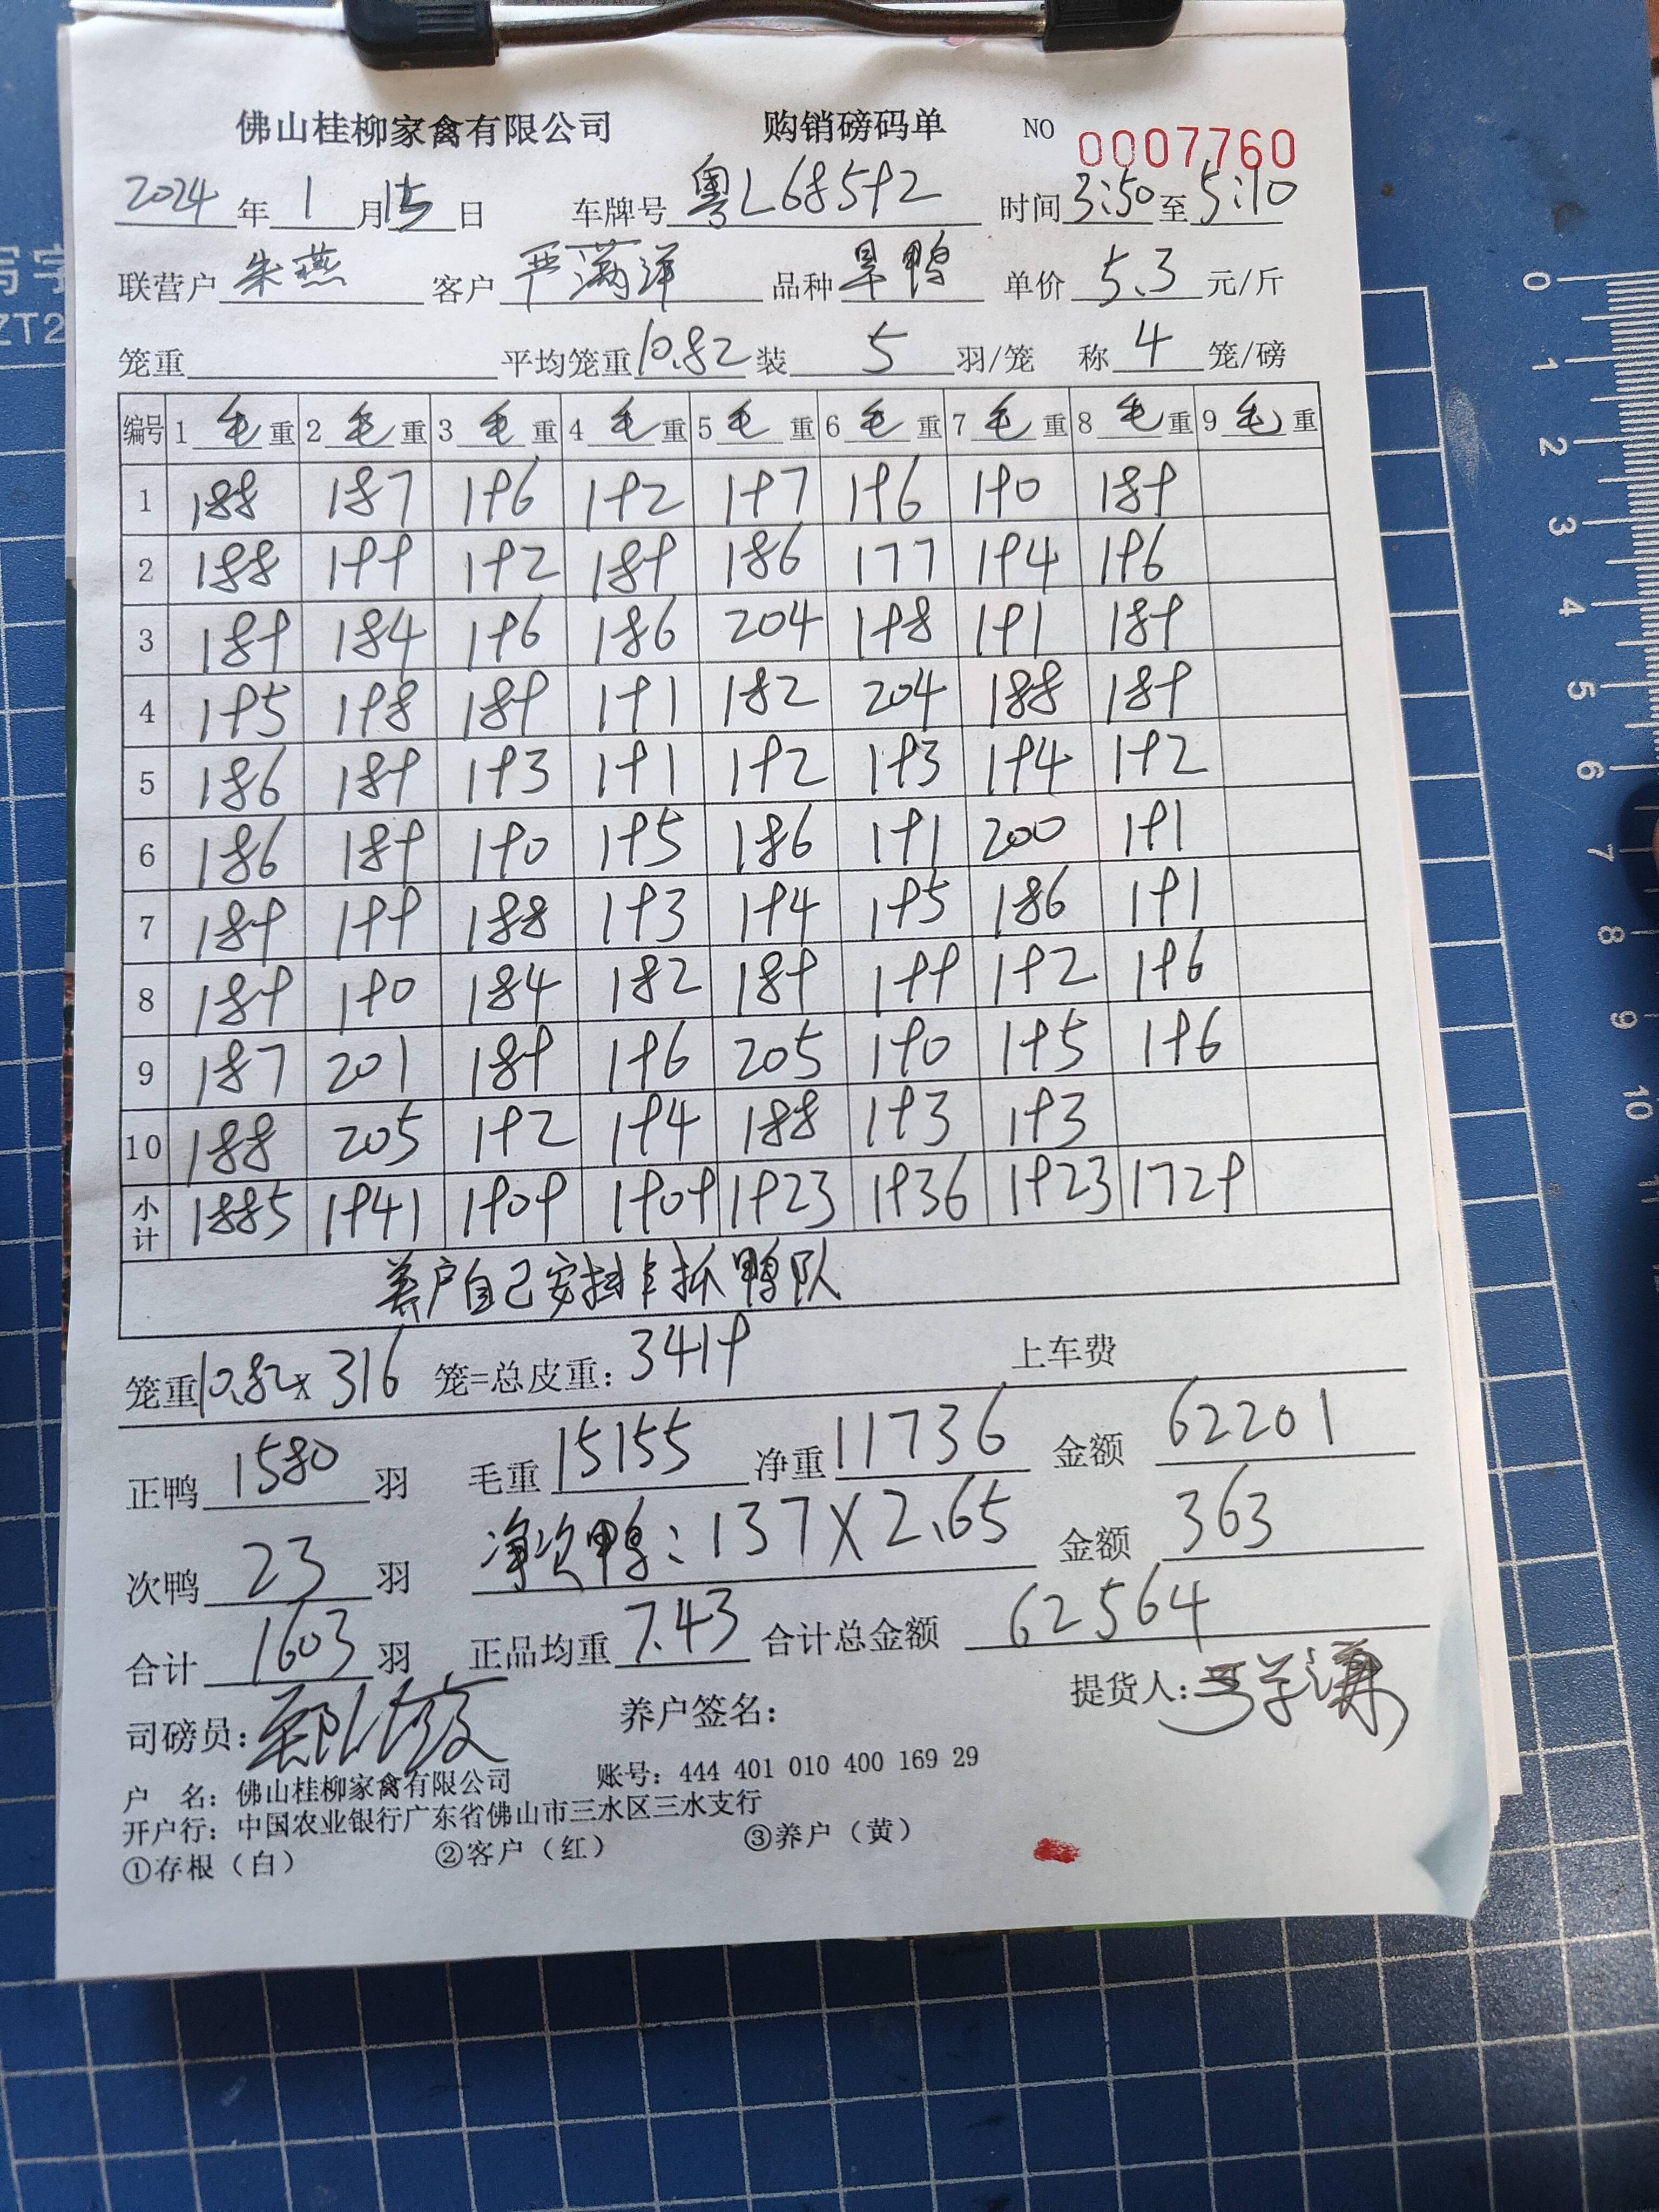 佛山桂柳家禽有限公司 购销磅码单 NO 0007760
2024年1月15日 车牌号粤L68592 时间3:50至5:10
联营户朱燕 客户严满洋 品种旱鸭 单价5.3元/斤
笼重 平均笼重10.82装5羽/笼 称4笼/磅
编号 1毛重 2毛重 3毛重 4毛重 5毛重 6毛重 7毛重 8毛重 9毛重
1 188 187 196 192 197 196 190 189
2 188 199 192 189 186 177 194 196
3 189 184 196 186 204 198 191 189
4 195 198 189 191 182 204 188 189
5 186 189 193 191 192 193 194 192
6 186 189 190 195 186 191 200 191
7 189 199 188 193 194 195 186 191
8 189 190 184 182 189 199 192 196
9 187 201 189 196 205 190 195 196
10 188 205 192 194 188 193 193
小计 1885 1941 1909 1909 1923 1936 1923 1729
养户自己安排车抓鸭队
笼重10.82x316笼=总皮重：3419 上车费
正鸭1580羽 毛重15155净重11736金额62201
次鸭23羽 净次鸭：137X2.65 金额363
合计1603羽 正品均重7.43合计总金额62564
司磅员： 养户签名： 提货人：
户 名：佛山桂柳家禽有限公司 账号：444 401 010 400 169 29
开户行：中国农业银行广东省佛山市三水区三水支行
①存根（白） ②客户（红） ③养户（黄）
0
1
2
3
4
5
6
7
8
9
10